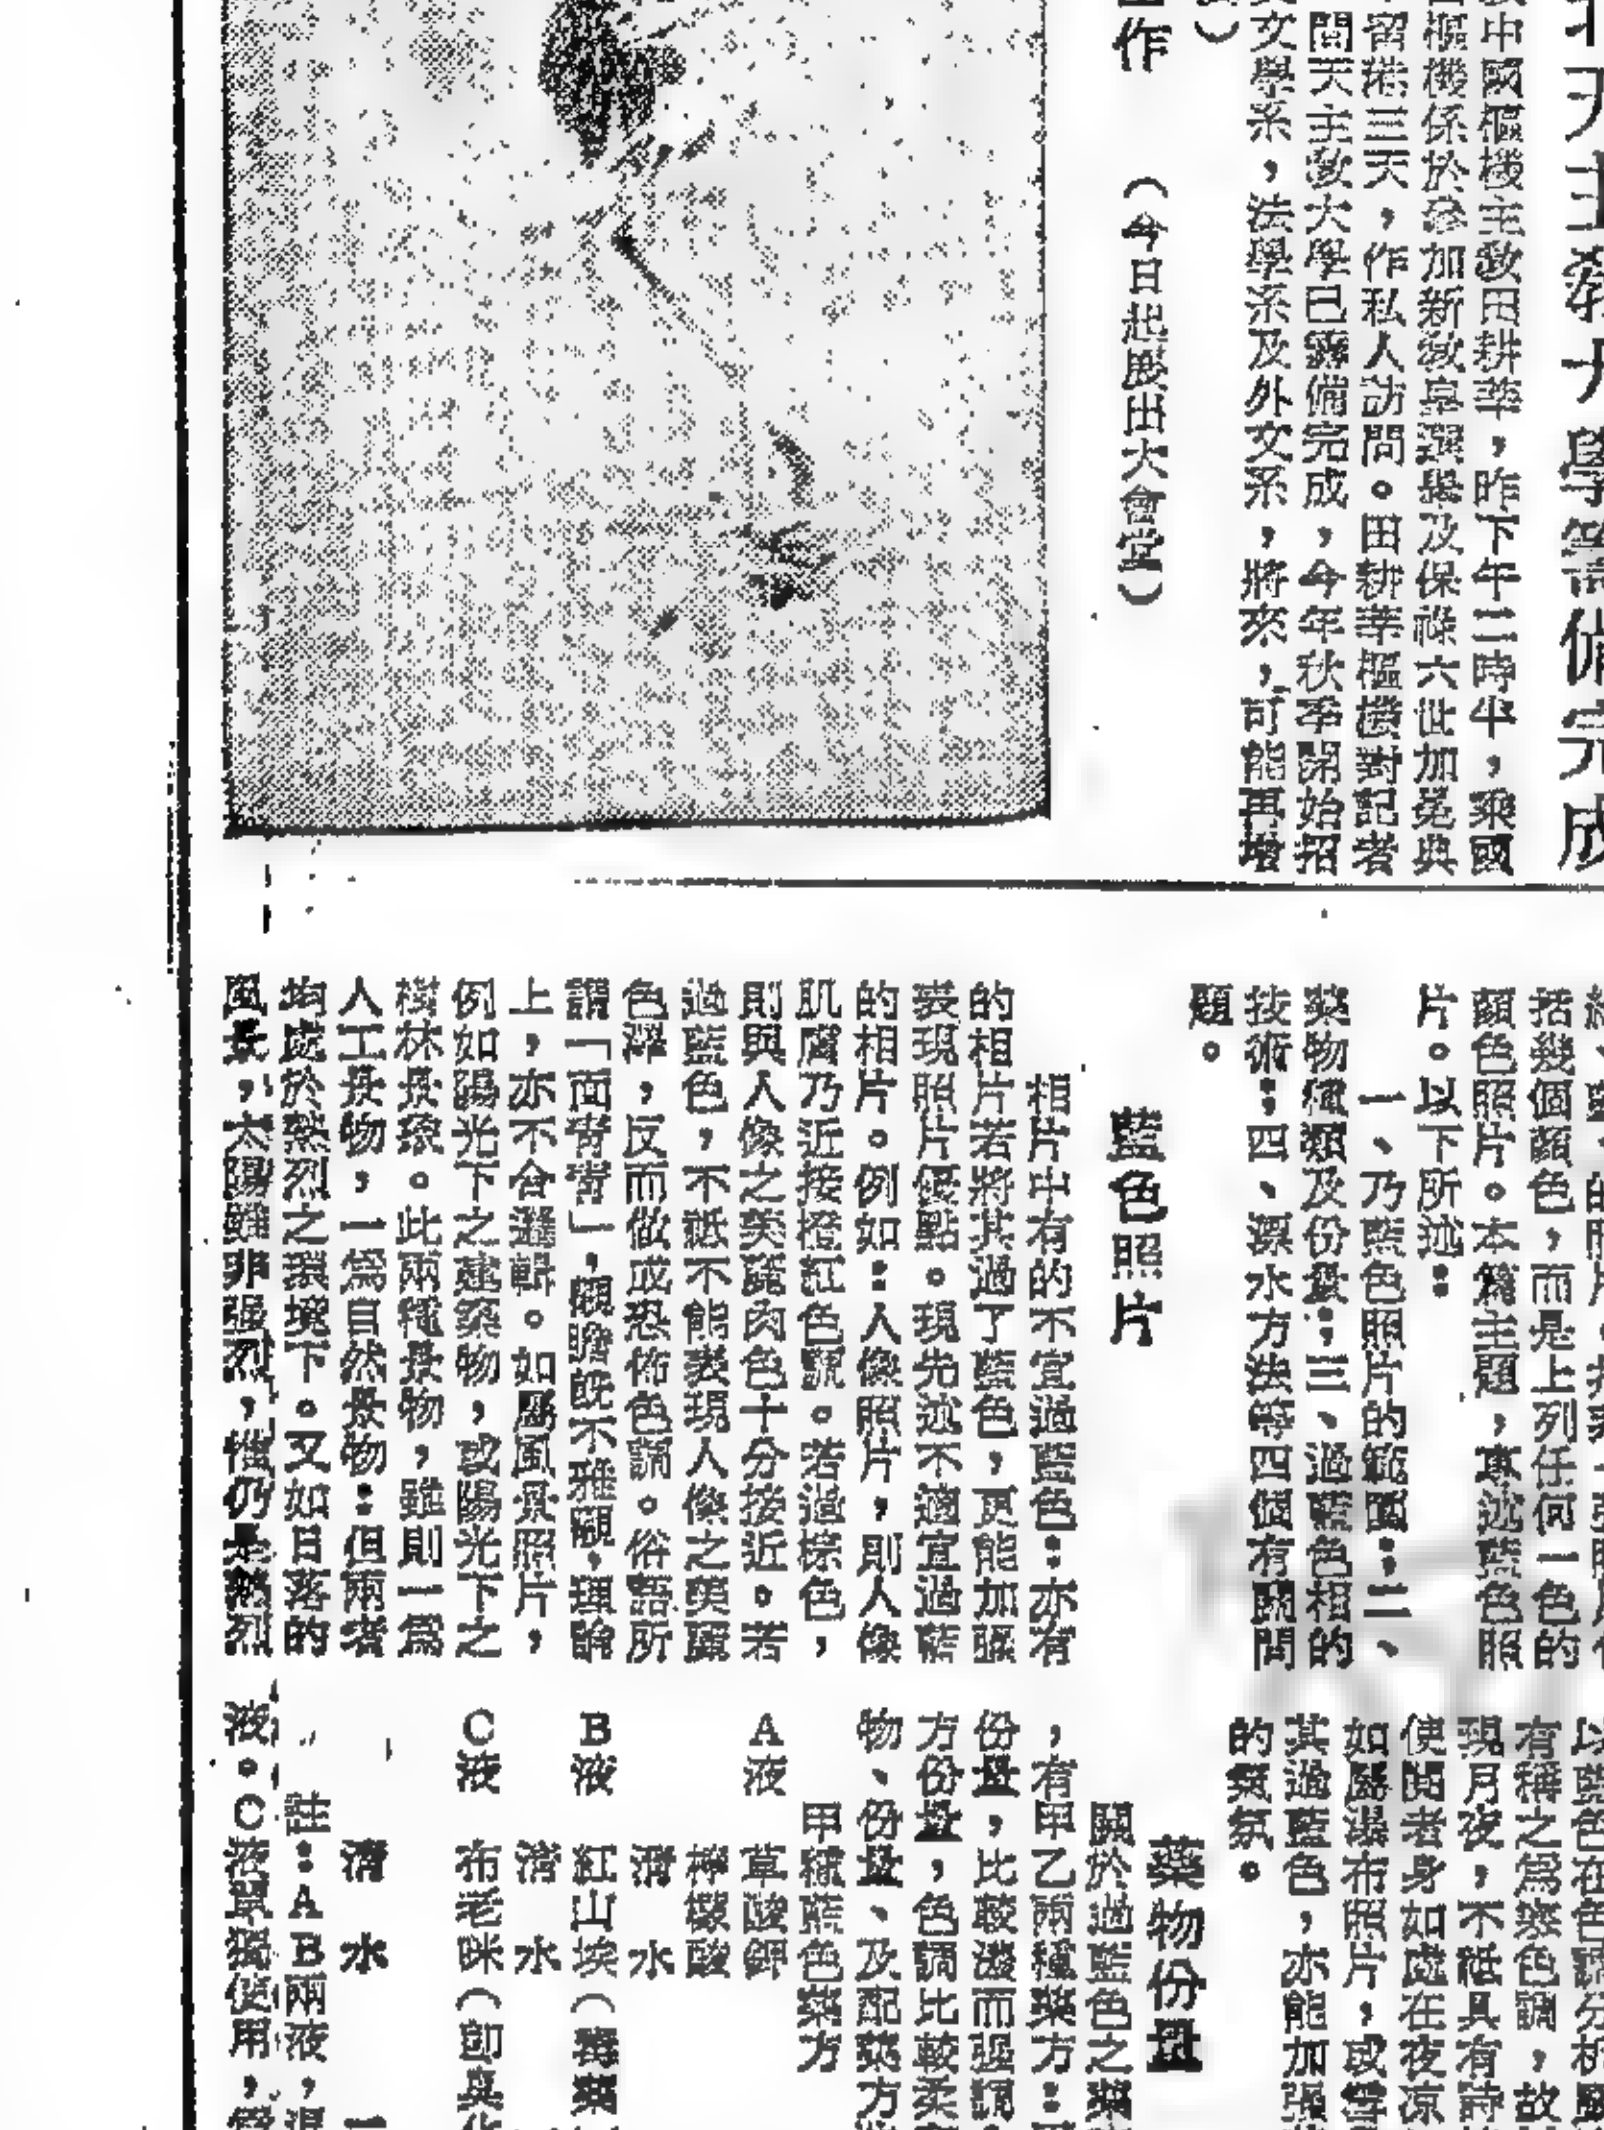 天主教大學籌備完成
中國樞機主教田耕莘，昨下午二時半，乘國
樞機係於參加新教皇選舉及保祿六世加冕典
留港三天，作私人訪問。田耕莘樞機對記者
間天主教大學已籌備完成，今年秋季開始招
文學系，法學系及外文系，將來，可能再增
作　（今日起展出大會堂）
括幾個顏色，而是上列任何一色的
顏色照片。本篇主題，專述藍色照
片。以下所述：
一、乃藍色照片的範圍；二、
藥物種類及份量；三、過藍色相的
技術；四、漂水方法等四個有關問
題。
藍色照片
相片中有的不宜過藍色；亦有
的相片若將其過了藍色，更能加强
表現照片優點。現先述不適宜過藍
的相片。例如：人像照片，則人像
肌膚乃近接橙紅色調。若過棕色，
則與人像之美麗肉色十分接近。若
過藍色，不祗不能表現人像之美麗
色澤，反而做成恐怖色調。俗語所
謂「面青青」，觀瞻既不雅觀，理論
上，亦不合邏輯。如屬風景照片，
例如陽光下之建築物，或陽光下之
樹林景象。此兩種景物，雖則一為
人工景物，一為自然景物；但兩者
均處於熱烈之環境下。又如日落的
風景，太陽雖非强烈，惟仍是熱烈
以藍色在色調分析
有稱之為寒色調，故
現月夜，不祗具有詩
使閱者身如處在夜凉
如屬瀑布照片，或雪
其過藍色，亦能加强
的氣氛。
藥物份量
關於過藍色之藥
，有甲乙兩種藥方：
份量，比較濃而强調
方份量，色調比較柔
物、份量、及配藥方
甲種藍色藥方
A液　草酸鉀
檸檬酸
清水
B液　紅山埃（毒藥
清水
C液　布老咪（即臭
清水　一
註：A B兩液，混
液。C液單獨使用，